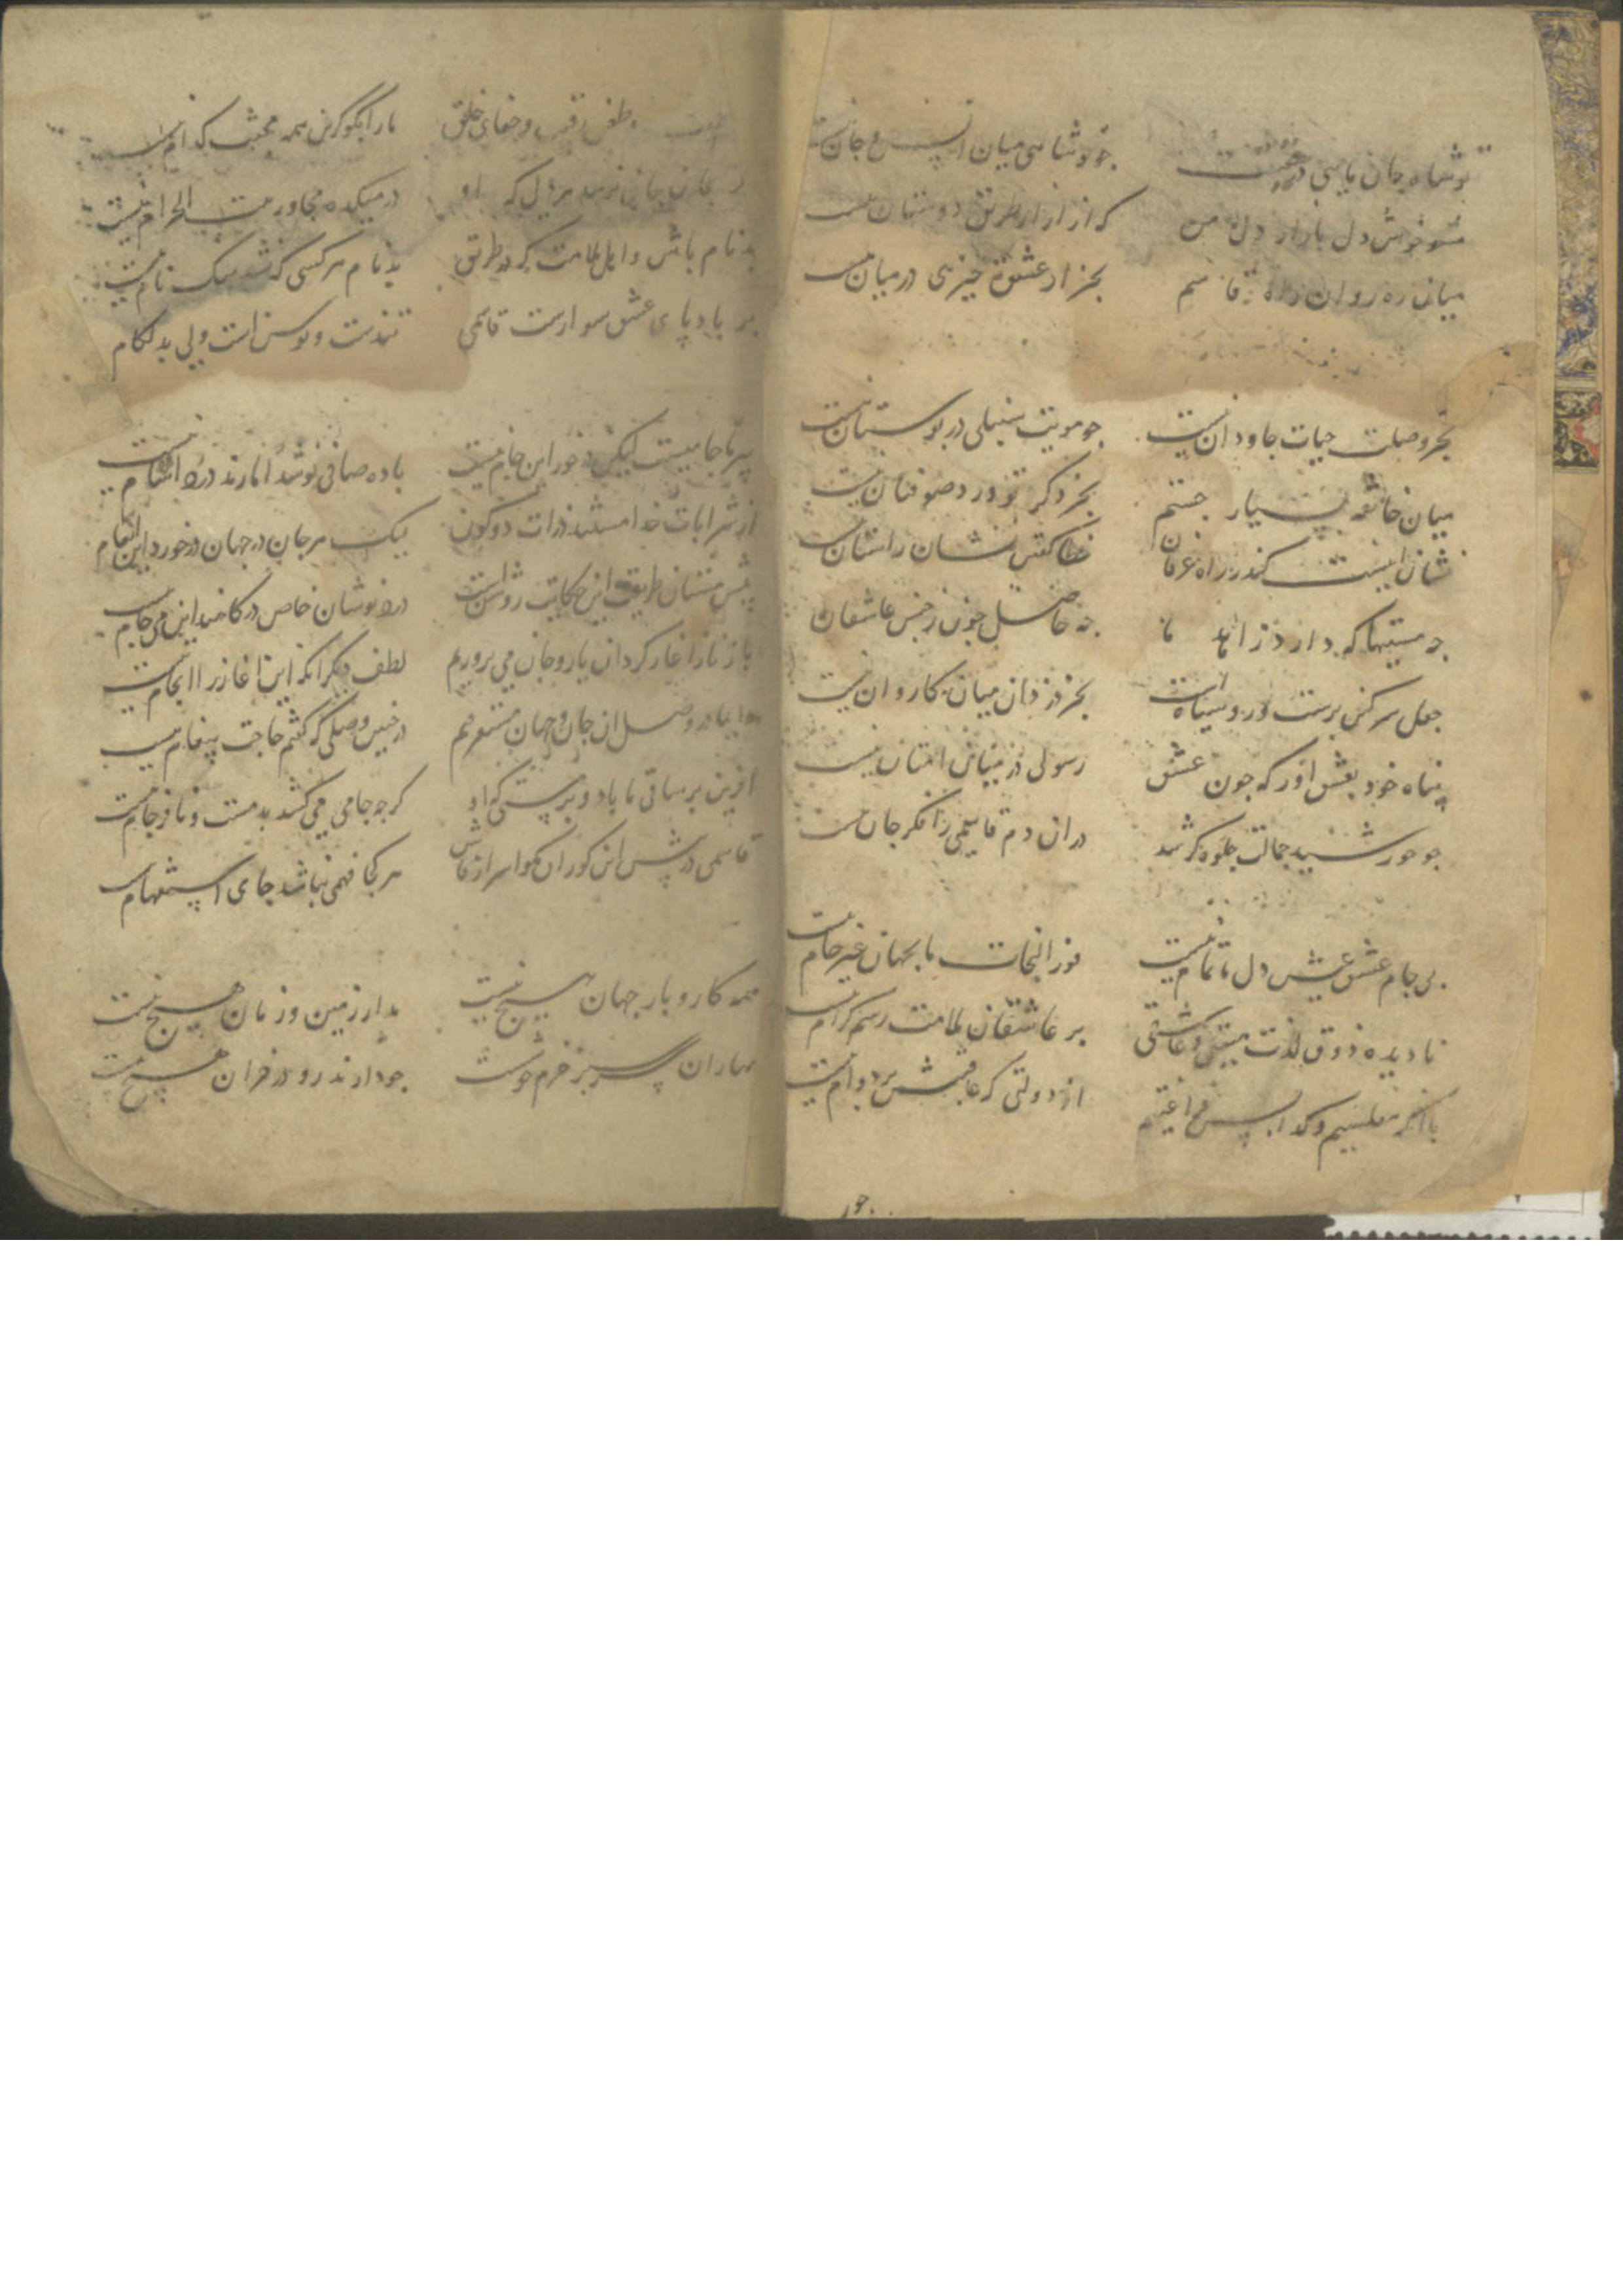 تو شاه جان مایی در حقیقت
چو تو شاهی میان انس و جان نیست
مشو خوش دل بازار دل من
که ازار از طریق دوستان نیست
میان ره روان راه قاسم
بجز از عشق تو چیزی در میان نیست
بجز وصلت حیات جاودان نیست
چو مویت سنبلی در بوستان نیست
میان خانقه بسیار جستم
بجز ذکر تو ورد صوفیان نیست
نشان اینست کندر راه عرفان
خطا گفتن نشان راستان نیست
چه مستیها که دارد زاهد ما
چه حاصل چون ز جنس عاشقان
جعل سرکین پرست و رو سیاهست
بجز در دان میان کاروان نیست
پناه خود بعشق اور که چون عشق
رسولی در میان انس و جان نیست
چو خورشید جمالت جلوه گر شد
دران دم قاسمی را فکر جان نیست
بی جام عشق عیش دل ما تمام نیست
فوز النجات ما بجهان غیر جام نیست
نادیده ذوق لذت مستی و عاشقی
بر عاشقان ملامت رسم کرام نیست
با انکه مفلسیم و گدا بس فراغتیم
از دولتی که عاقبتش بر دوام نیست
جور
طعن رقیب و جفای خلق
ما را بگو کزین همه محنت کدام نیست
جانی نرسد هر دلی که او
در میکده مجاور بیت الحرام نیست
بدنام باش و اهل ملامت که در طریق
بدنام هر کسی که نشد نیک نام نیست
بر باد پای عشق سوارست قاسمی
تندست و توسن است ولی بد لگام
پیر ما جامیست لیکن در خور این جام نیست
باده صافی نوشد اما رند درد اشام نیست
از شرابات خدا مستند ذرات دو کون
لیک هر جان در جهان در خورد این انعام
پیش مستان طریق این حکایت روشن است
درد نوشان خاص درگاهند این می عام نیست
باز ناز اغاز کرد ان یار و جان می پروریم
لطف دیگر انکه این اغاز را انجام نیست
ما بیاد وصل ان جان و جهان مستغرقیم
در چنین وصلی که گفتم حاجت پیغام نیست
افرین بر ساقی ما باد و بر مستی که او
گرچه جامی می کشد بد مست و نافرجام نیست
قاسمی در پیش این کوران مگو اسرار فاش
هر کجا فهمی نباشد جای استفهام نیست
همه کار و بار جهان هیچ نیست
مدار زمین و زمان هیچ نیست
بهاران سر سبز خرم خوشست
چو دارند رو در خزان هیچ نیست